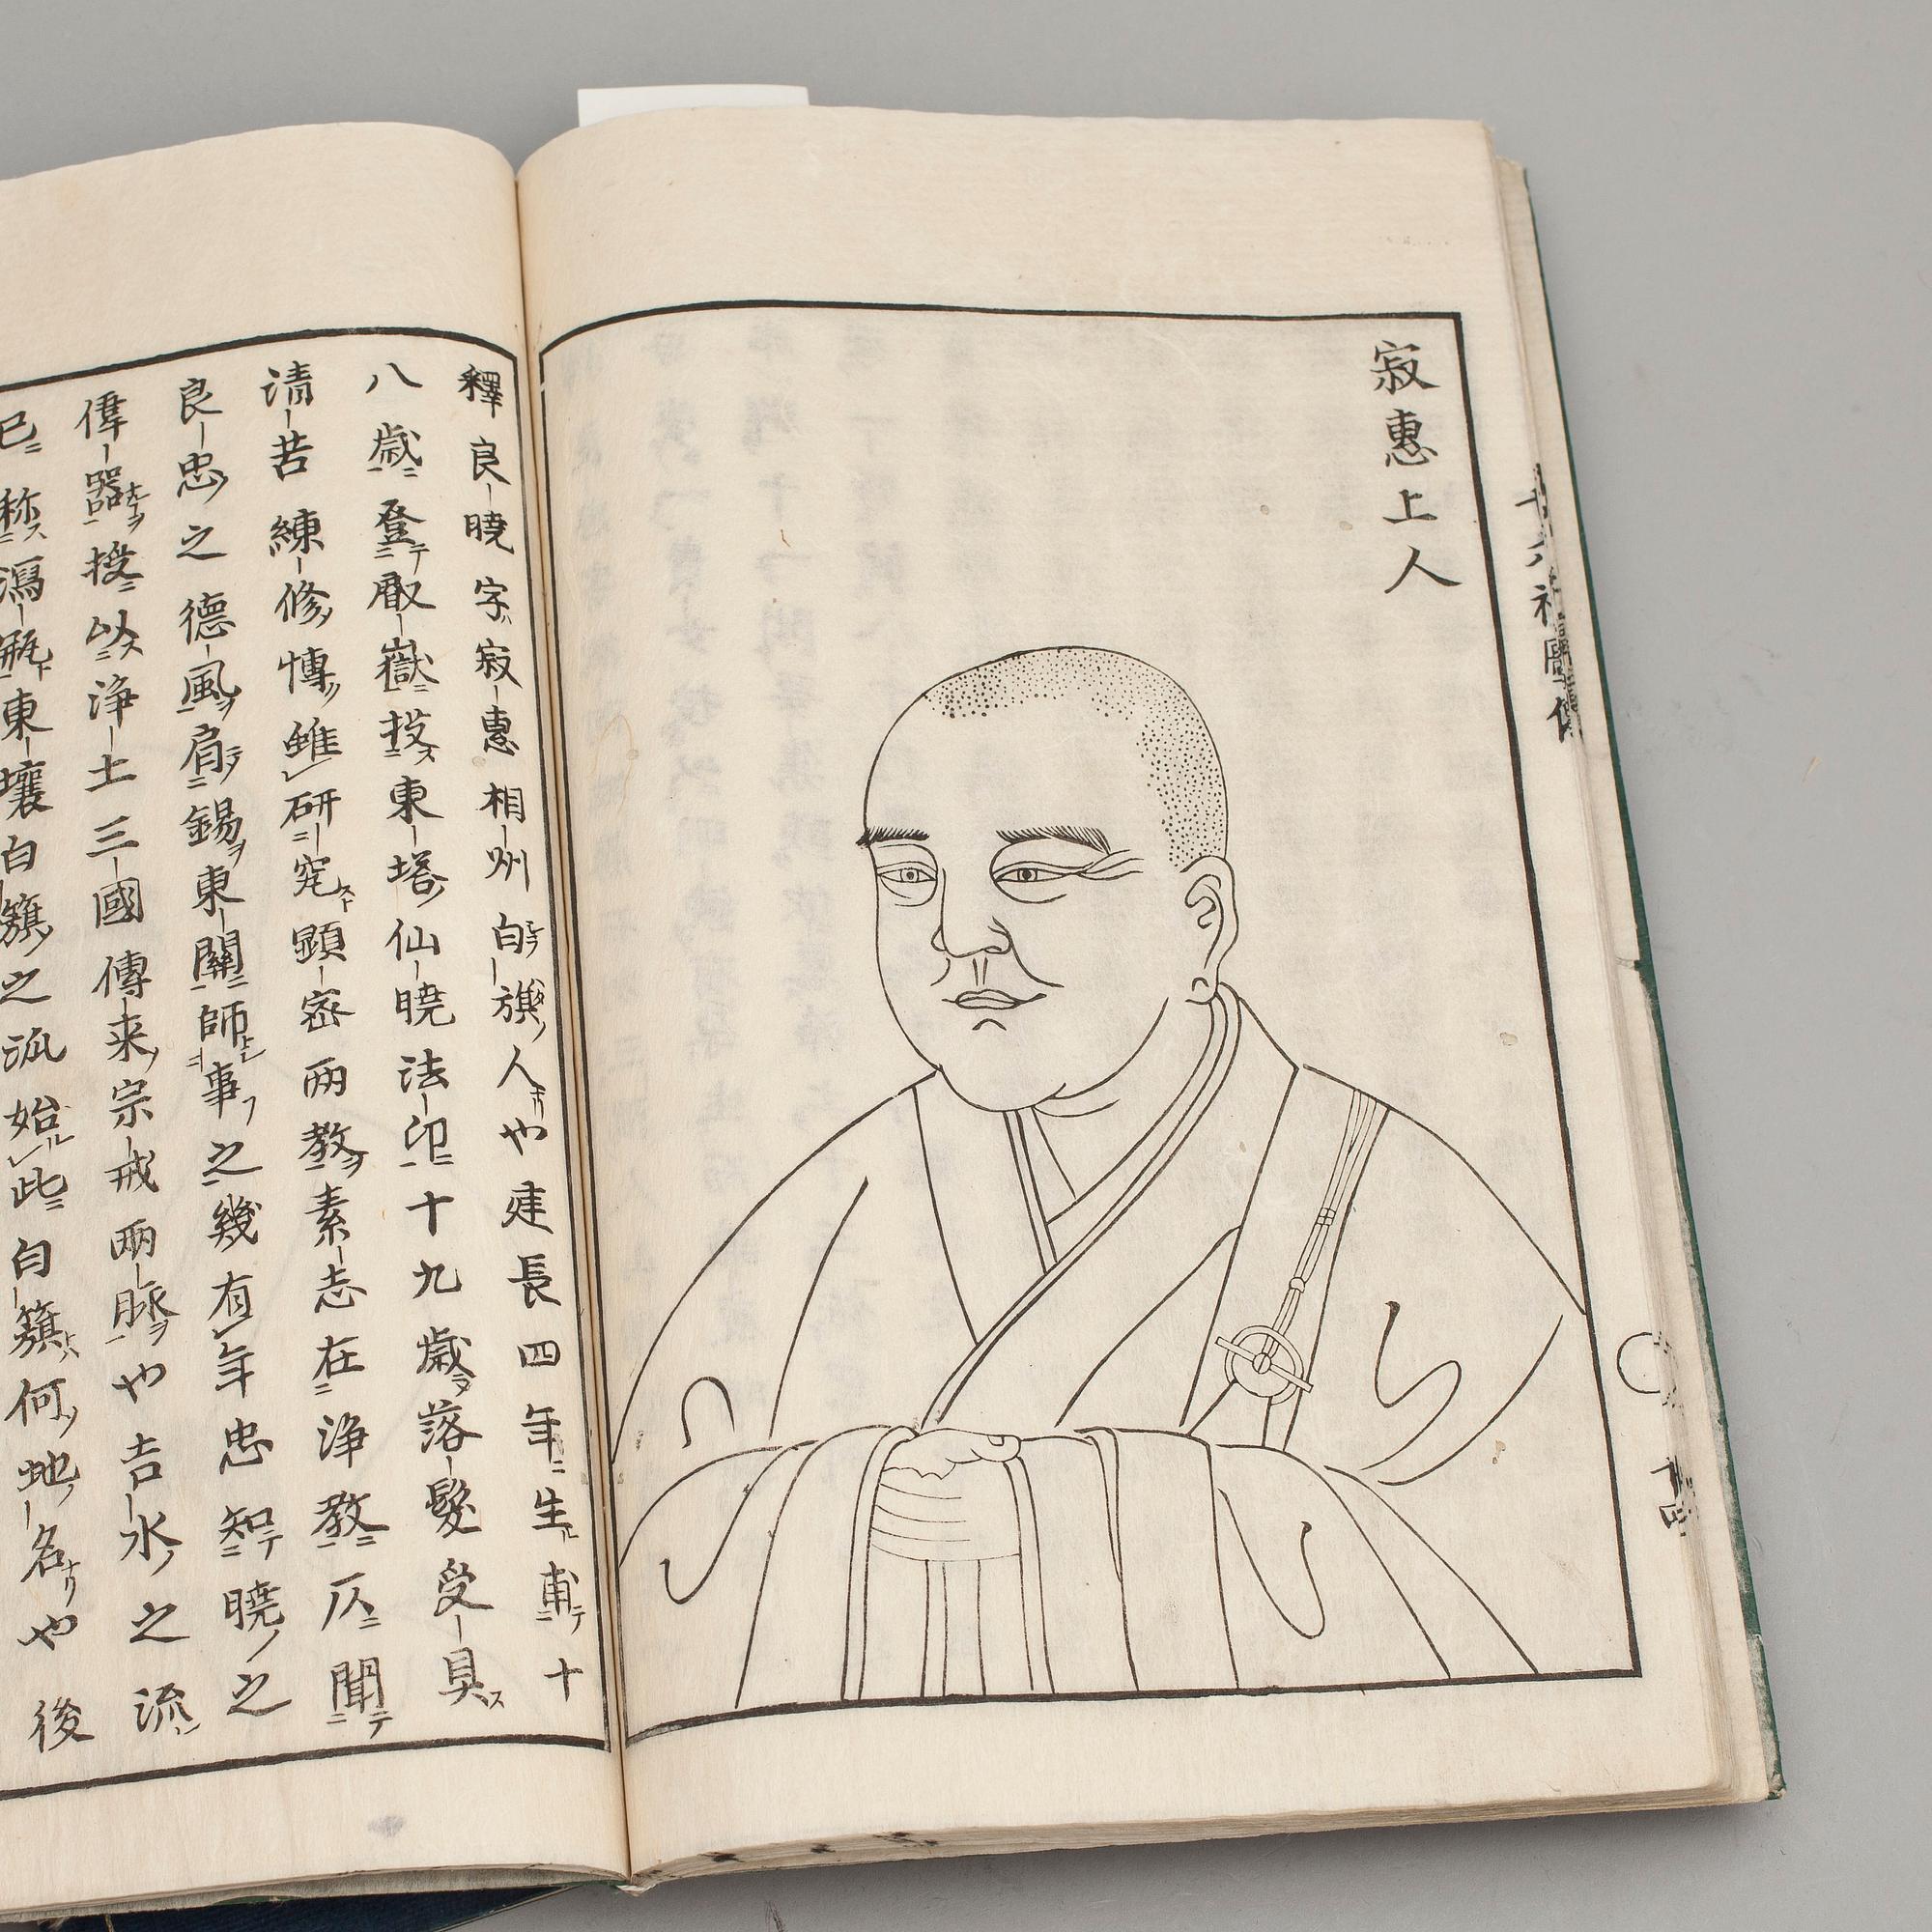 寂惠上人
釋良曉字寂惠相州白旗人也建長四年生甫十
八歳登叡嶽投東塔仙曉法印十九歳落髮受具
清苦練修慱雖研究顕宻兩教素志在浄教仄聞
良忠之德風肩錫東關師事之幾有年忠知曉之
偉器授以浄土三國傳来宗戒兩脈也吉水之流
已称瀉瓶東壤白籏之流始此白籏何地名也後